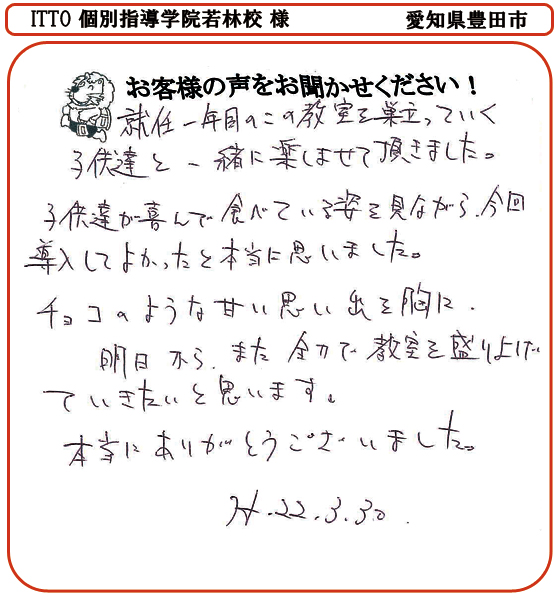 ITTO 個別指導学院若林校 様 愛知県豊田市
お客様の声をお聞かせください！
就任一年目のこの教室を巣立っていく
子供達と一緒に楽しませて頂きました。
子供達が喜んで食べている姿を見ながら、今回
導入してよかったと本当に思いました。
チョコのような甘い思い出を胸に、
明日から、また全力で教室を盛りよげ
ていきたいと思います。
本当にありがとうございました。
H.22.3.30.